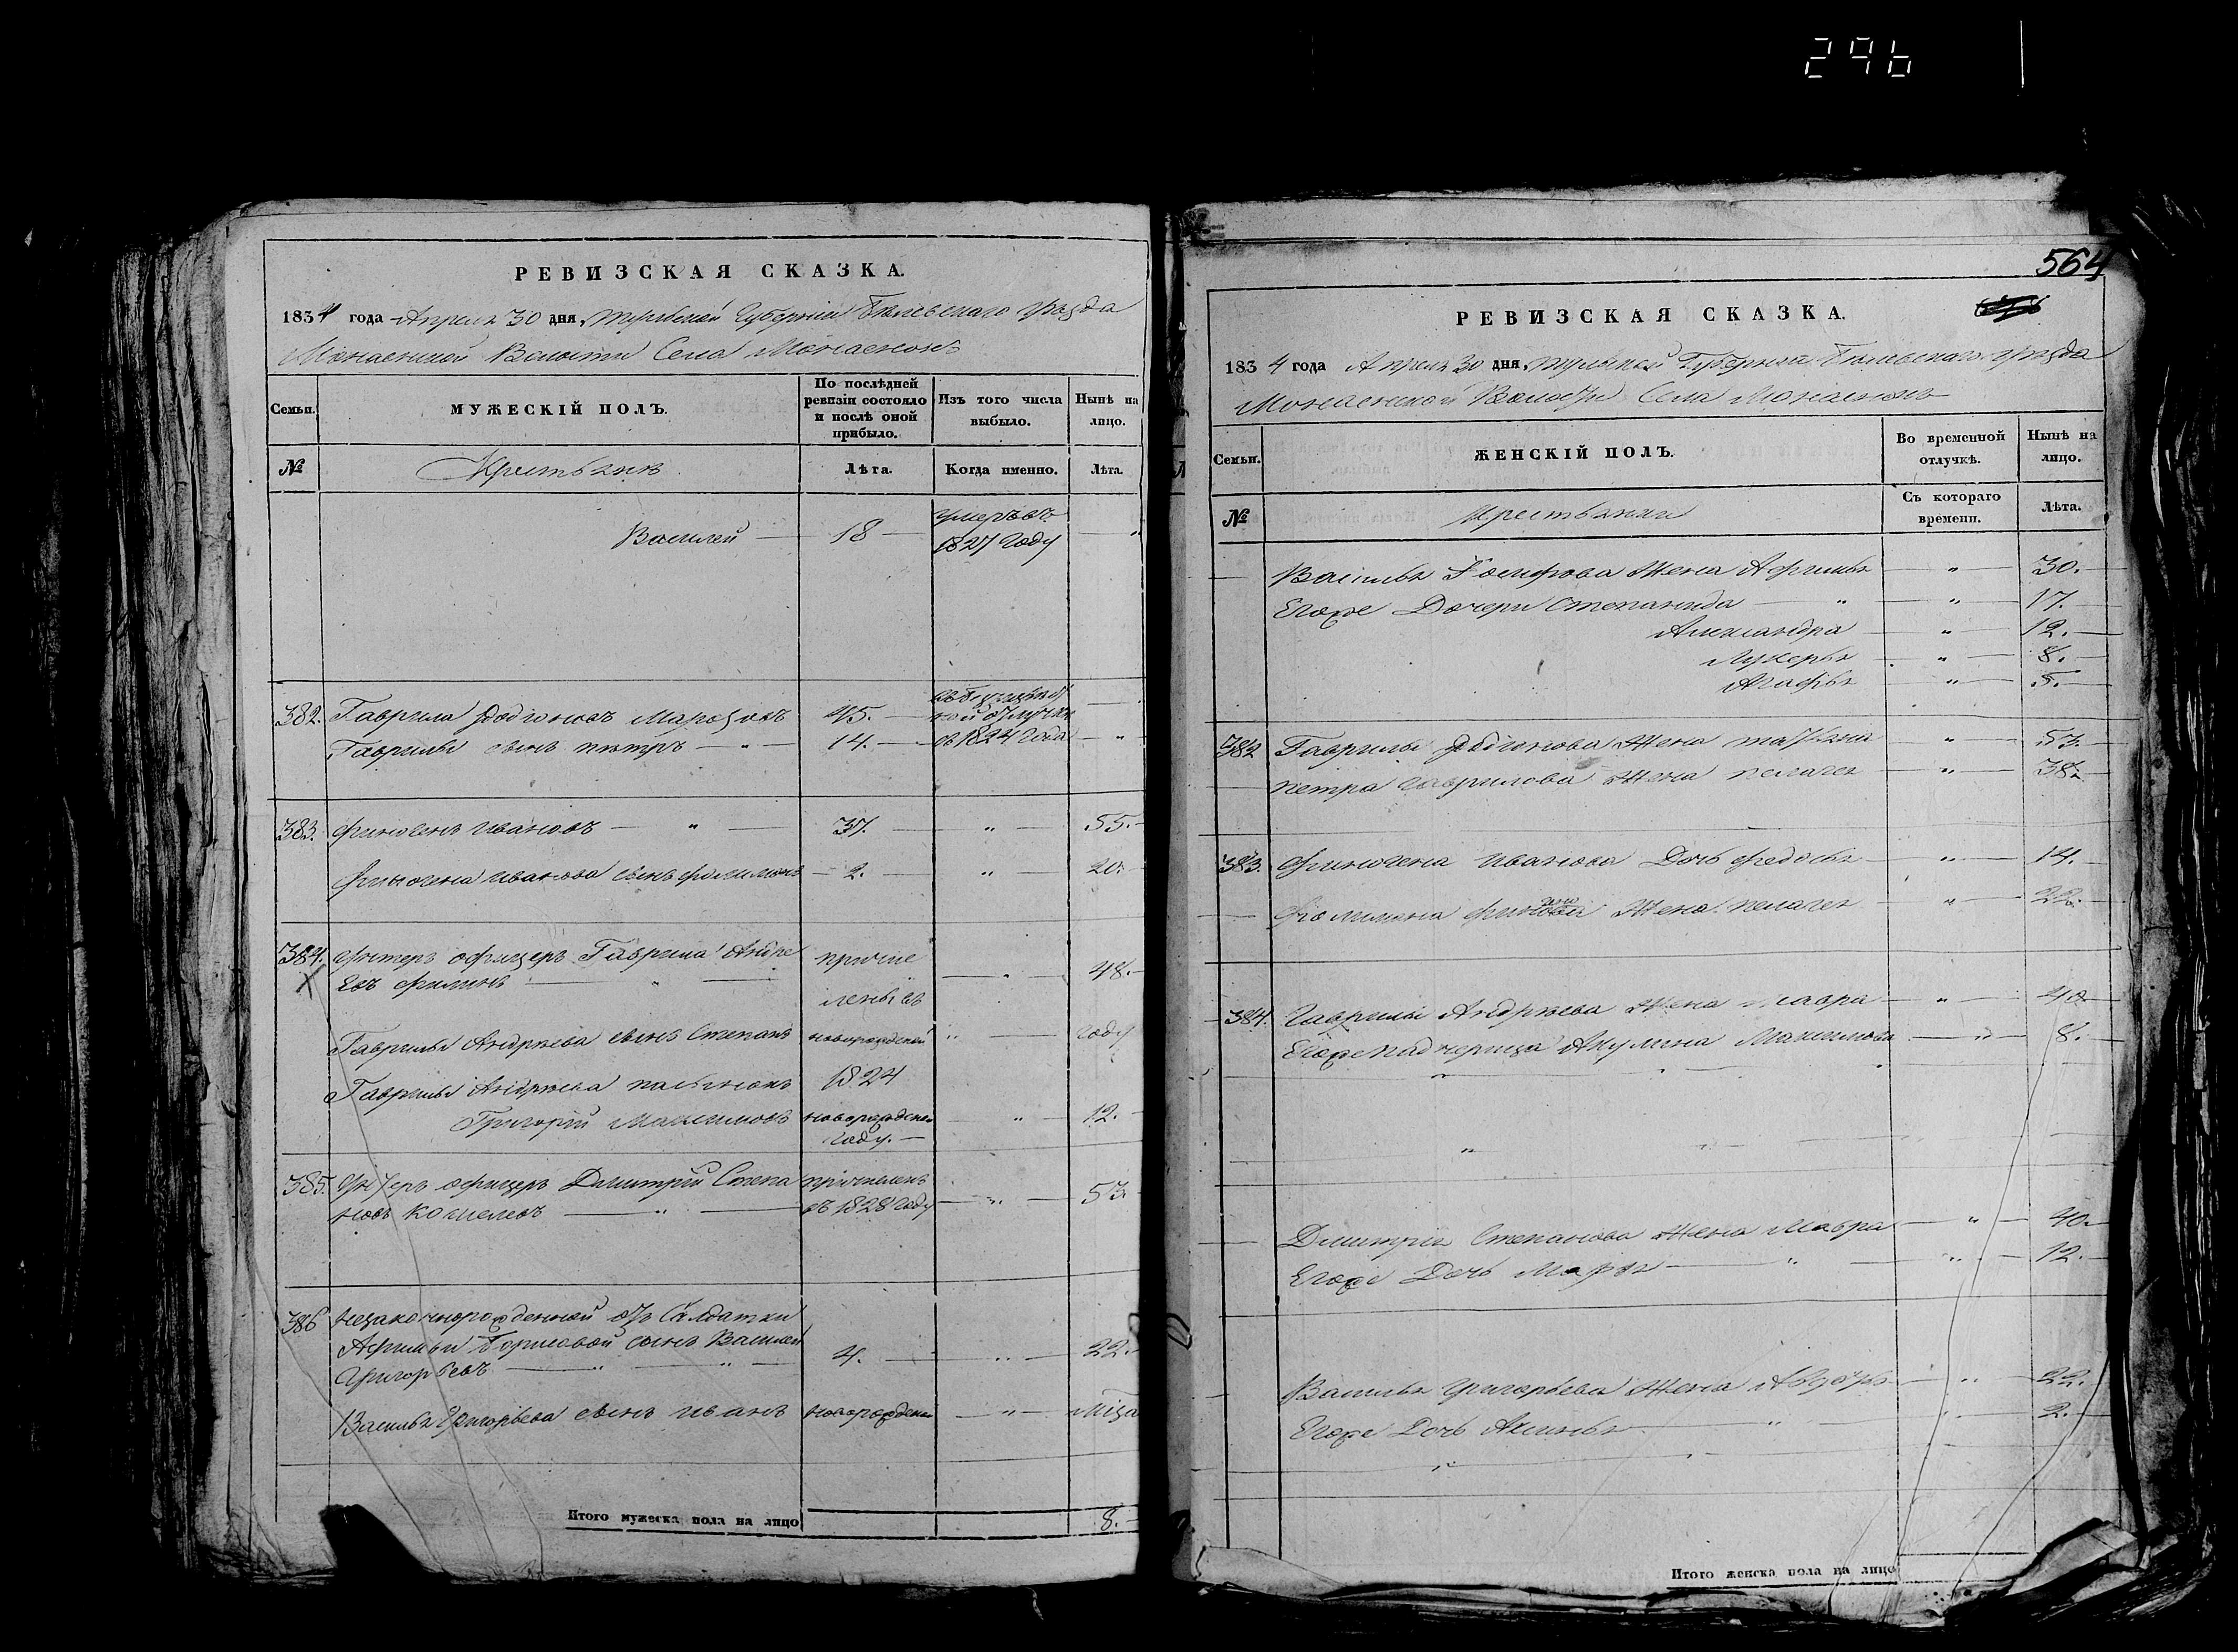 296
РЕВИЗСКАЯ СКАЗКА.
1834 года Апреля 30 дня, Тульской Губернии Белевского уезда
Монаенской Волости Села Монаенокъ
Семьи.
МУЖЕСКІЙ ПОЛЪ.
По послѣдней ревизіи состояло и послѣ оной прибыло.
Изъ того числа выбыло.
Нынѣ на лицо.
№
Крестьянъ
Лѣта.
Когда именно.
Лѣта.
Василей — 18 — умеръ въ 1827 году — "
382. Гаврила Родіоновъ Марозовъ 45. —
Гаврилы сынъ петръ — " — 14. — съ 1824 года — "
383. Финогенъ ивановъ — " — 37. — " — 55. —
Финогена иванова сынъ филимонъ — 2. — " — 20.
384. Унтеръ офицеръ Гаврила Андре
евъ филинъ — " — причи
сленъ въ — " — 48. —
Гаврилы Андреева сынъ Степанъ новорожденой " — году
Гаврилы Андреева пасынокъ 1824
Григорій Максимовъ новорожденой — " — 12. —
году. —
385. Унтеръ офицеръ Дмитрій Степа
новъ Кошелевъ — " — причисленъ въ 1828 году — " — 53
386 Незаконнорожденной отъ Салдатки
Афимьи Борисовой сынъ Василей
Григорьевъ — " — " — 4. — " — 22.
Василья Григорьева сынъ иванъ новорожденой — " — Мца
Итого мужеска пола на лицо 8. —
564
РЕВИЗСКАЯ СКАЗКА.
1834 года Апреля 30 дня, Тульской Губерніи Белевского уезда
Монаенской Волости Села Монаенокъ
Семьи.
ЖЕНСКІЙ ПОЛЪ.
Во временной отлучкѣ.
Нынѣ на лицо.
№
Крестьянки
Съ котораго времени.
Лѣта.
Василья Жена Афимья — " — 30. —
Егоже Дочери Степанида — " — " — 17. —
Александра — " — 12. —
Лукерья — " — 8. —
Агафья — " — 5. —
382 Гаврилы Родіонова Жена татьяна — " — 53. —
петра гаврилова Жена пелагея — " — 38. —
383. Финогена иванова Дочь федосья — " — 14. —
Филимона Жена пелагея — " — 22. —
384. Гаврилы Андреева Жена мавра — " — 40 —
Егоже падчерица Акулина Максимова — " — 8. —
Дмитрія Степанова Жена Мавра — " — 40. —
Егоже Дочь Марья — " — " — 12. —
Василья Григорьева Жена Авдотья — " — 22. —
Егоже Дочь Аксинья — " — " — 2. —
Итого женска пола на лицо